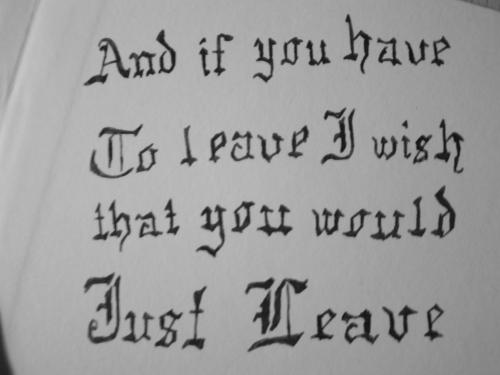 And if you have
To leave I wish
that you would
Just Leave